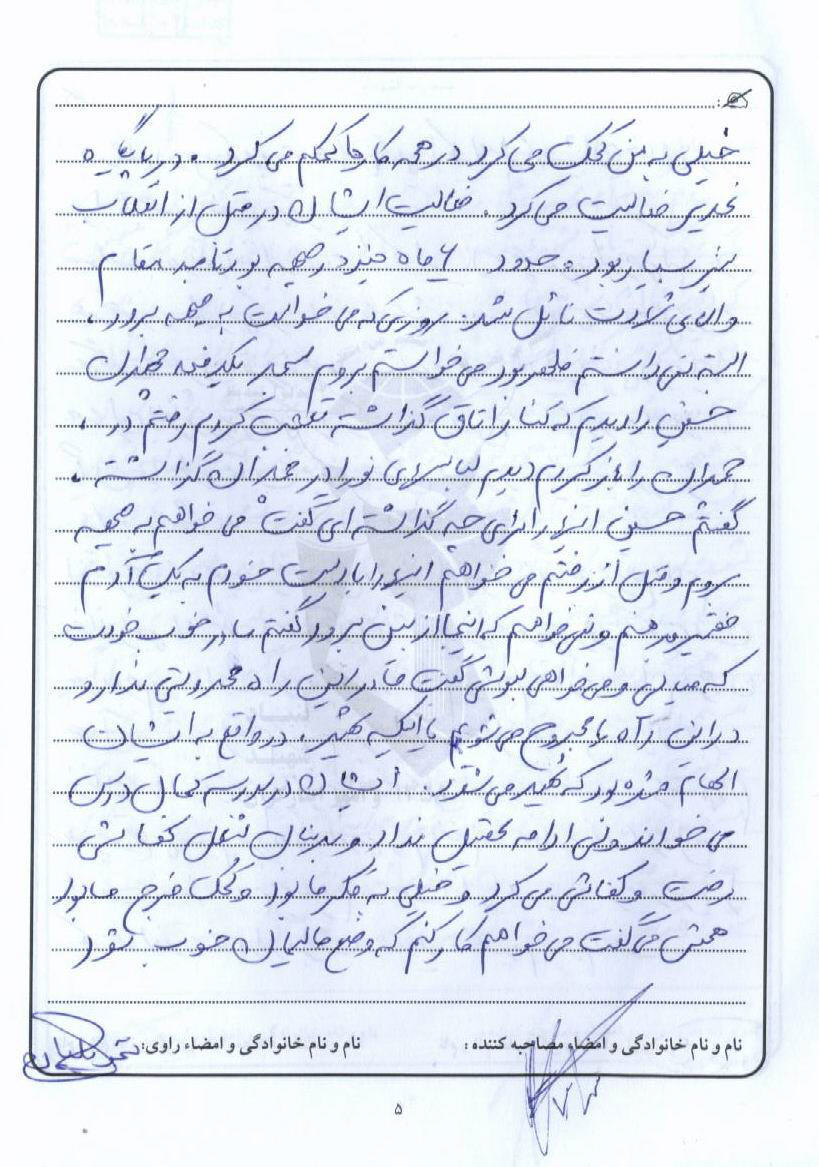 خیلی به من کمک می کرد در همه کارها کمکم می کرد. در پایگاه
غدیر فعالیت می کرد. فعالیت ایشان در قبل از انقلاب
نیز بسیار بود. حدود ۶ ماه نیز در جبهه بود تا به مقام
والای شهادت نائل شد. روزی که می خواست به جبهه برود،
البته نمی دانستم ظهر بود می خواستم بروم بگیرم چمدان
حسین را دیدم که کنار اتاق گذاشته تعجب کردم رفتم در،
چمدان را باز کردم دیدم لباسهای نو را در چمدان گذاشته.
گفتم حسین اینها را برای چه گذاشته ای گفت می خواهم به جبهه
بروم و قبل از رفتم می خواهم اینها را با دست خودم به یک آدم
فقیر بدهم و نمی خواهم که اینها از بین برود گفتم مادر خوب خودت
که میایی و می خواهی بپوشی گفت مادر این راه محدودیتی ندارد و
در این راه یا مجروح می شویم یا اینکه شهید. در واقع به ایشان
الهام شده بود که شهید می شود. ایشان در مدرسه کمال درس
می خواند ولی ادامه تحصیل نداد و بدنبال شغل کفاشی
رفت و کفاشی می کرد و خیلی به فکر ما بود و کمک خرج ما بود
همش می گفت می خواهم کار کنم که وضع مالیمان خوب شود
نام و نام خانوادگی و امضاء مصاحبه کننده : نام و نام خانوادگی و امضاء راوی:
۵